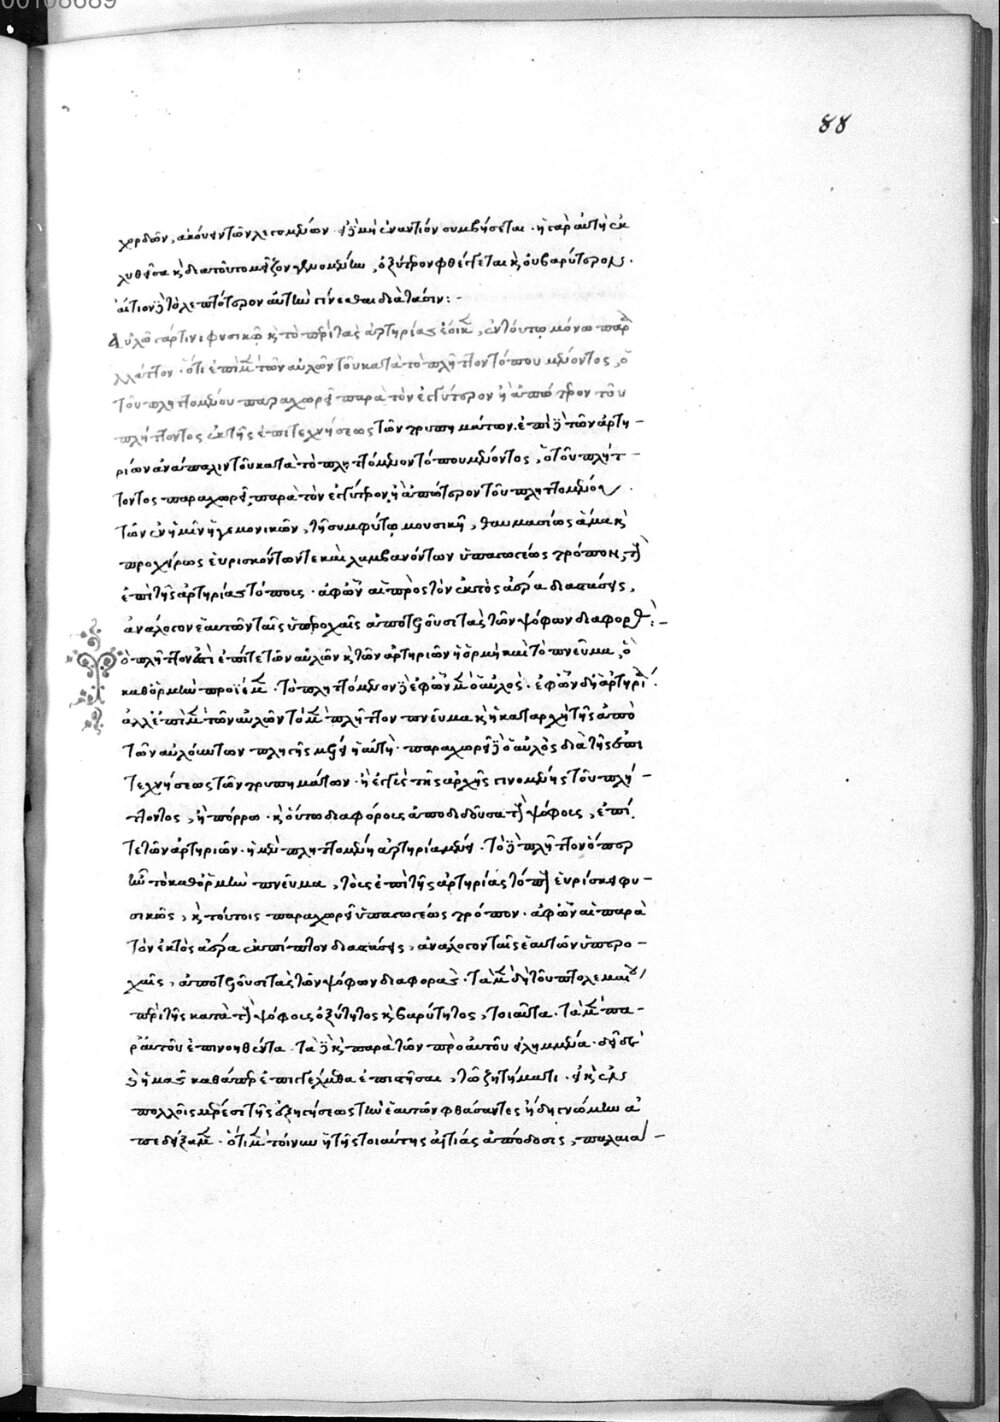 00108689
88
χορδῶν, ἀκούειν τῶν λεγομένων. εἰ δὲ μὴ ἐναντίον συμβήσεται. ἡ γὰρ αὐτὴ ἐκ
λυθεῖσα καὶ διὰ τοῦτο μεῖζον γενομένη, ὀξύτερον φθέγγεται καὶ οὐ βαρύτερον.
αἴτιον δὲ τὸ λεπτότερον αὐτὴν γίνεσθαι διὰ τάσιν :-
Αὐλῷ γάρ τινι φυσικῷ καὶ τὸ περὶ τὰς ἀρτηρίας ἔοικεν, ἐν τούτῳ μόνῳ παραλ
λάττον. ὅτι ἐπὶ μὲν τῶν αὐλῶν τοῦ κατὰ τὸ πλῆττον τόπου μένοντος, ὁ
τοῦ πληττομένου παραχωρεῖ παρὰ τὸν ἐγγύτερον ἢ ἀπώτερον τοῦ
πλήττοντος ἐκ τῆς ἐπιτεχνήσεως τῶν τρυπημάτων. ἐπὶ δὲ τῶν ἀρτη-
ριῶν ἀνάπαλιν τοῦ κατὰ τὸ πληττόμενον τόπου μένοντος, ὁ τοῦ πλήτ-
τοντος παραχωρεῖ παρὰ τὸν ἐγγύτερον ἢ ἀπώτερον τοῦ πληττομένου.
τῶν ἐν ἡμῖν ἡγεμονικῶν, τῇ συμφύτῳ μουσικῇ, θαυμασίως ἅμα καὶ
προχείρως εὑρισκόντων τε καὶ λαμβανόντων ὑπαγωγέως τρόπον, τοὺς
ἐπὶ τῆς ἀρτηρίας τόπους. ἀφ' ὧν αἱ πρὸς τὸν ἐκτὸς ἀέρα διαστάσεις,
ἀνάλογον ἑαυτῶν ταῖς ὑπεροχαῖς ἀποτελοῦσι τὰς τῶν ψόφων διαφοράς :-
ὁ πλῆττον ἐστὶ ἐπί τε τῶν αὐλῶν καὶ τῶν ἀρτηριῶν ἡ ὁρμὴ καὶ τὸ πνεῦμα, ὃ
καθ' ὁρμὴν προϊέμεν. τὸ πληττόμενον δὲ ἐφ' ὧν μὲν ὁ αὐλός. ἐφ' ὧν δὲ ἡ ἀρτηρία.
ἀλλ' ἐπὶ μὲν τῶν αὐλῶν τὸ μὲν πλῆττον πνεῦμα καὶ ἡ καταρχὴ τῆς ἀπὸ
τῶν αὐλούντων πληγῆς μένει ἡ αὐτή. παραχωρεῖ δὲ ὁ αὐλὸς διὰ τῆς ἐπι
τεχνήσεως τῶν τρυπημάτων. ἢ ἐγγὺς τῆς ἀρχῆς γινομένης τοῦ πλή-
ττοντος, ἢ πόρρω. καὶ οὕτω διαφόρους ἀποδιδοῦσα τοὺς ψόφους, ἐπί
τε τῶν ἀρτηριῶν. ἡ μὲν πληττομένη ἀρτηρία μένει. τὸ δὲ πλῆττον ὅπερ
ἦν τὸ καθ' ὁρμὴν πνεῦμα, τοὺς ἐπὶ τῆς ἀρτηρίας τόπους εὑρίσκει φυ-
σικῶς, καὶ τούτοις παραχωρεῖ ὑπαγωγέως τρόπον. ἀφ' ὧν αἱ παρὰ
τὸν ἐκτὸς ἀέρα ἐκπίπτον διαστάσεις, ἀνάλογον ταῖς ἑαυτῶν ὑπερο-
χαῖς, ἀποτελοῦσι τὰς τῶν ψόφων διαφοράς. τὰ μὲν δὴ τοῦ πτολεμαίου
περὶ τῆς κατὰ τοὺς ψόφους ὀξύτητος καὶ βαρύτητος, τοιαῦτα. τὰ μὲν πα-
ρ' αὐτοῦ ἐπινοηθέντα. τὰ δὲ καὶ παρὰ τῶν πρὸ αὐτοῦ εἰλημμένα. δεῖ δὲ
καὶ ἡμᾶς καθάπερ ἐπηγγειλάμεθα ἐπιστῆσαι, τῷ ζητήματι. εἰ καὶ ἐν
πολλοῖς μέρεσι τῆς ἐξηγήσεως τὴν ἑαυτῶν φθάσαντες ἤδη γνώμην ἀ
πεδείξαμεν. ὅτι μὲν τοίνυν ἡ τῆς τοιαύτης αἰτίας ἀπόδοσις, παλαιὰ-